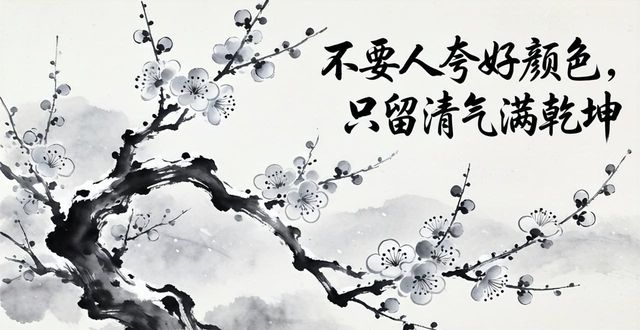 不要人夸好颜色，
只留清气满乾坤